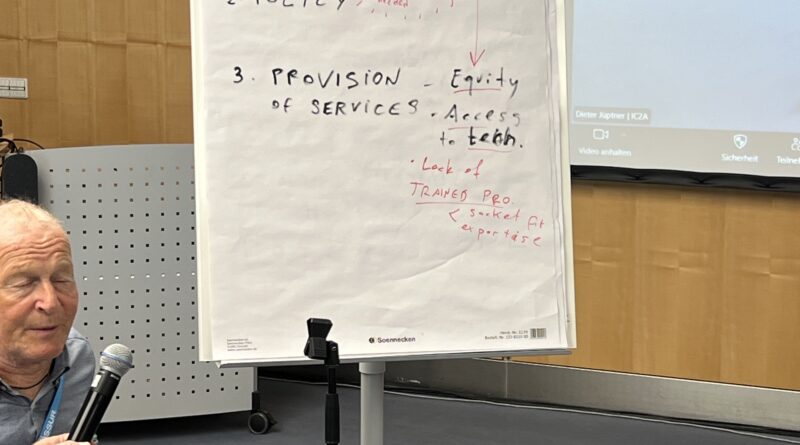 2 POLICY
needed
3. PROVISION - Equity
OF SERVICES • Access
to tech.
• Lack of
TRAINED PRO.
< socket fit
expertise
Soennecken
Dieter Jüptner | IC2A
Video anhalten
Sicherheit
Teilne
SSUR